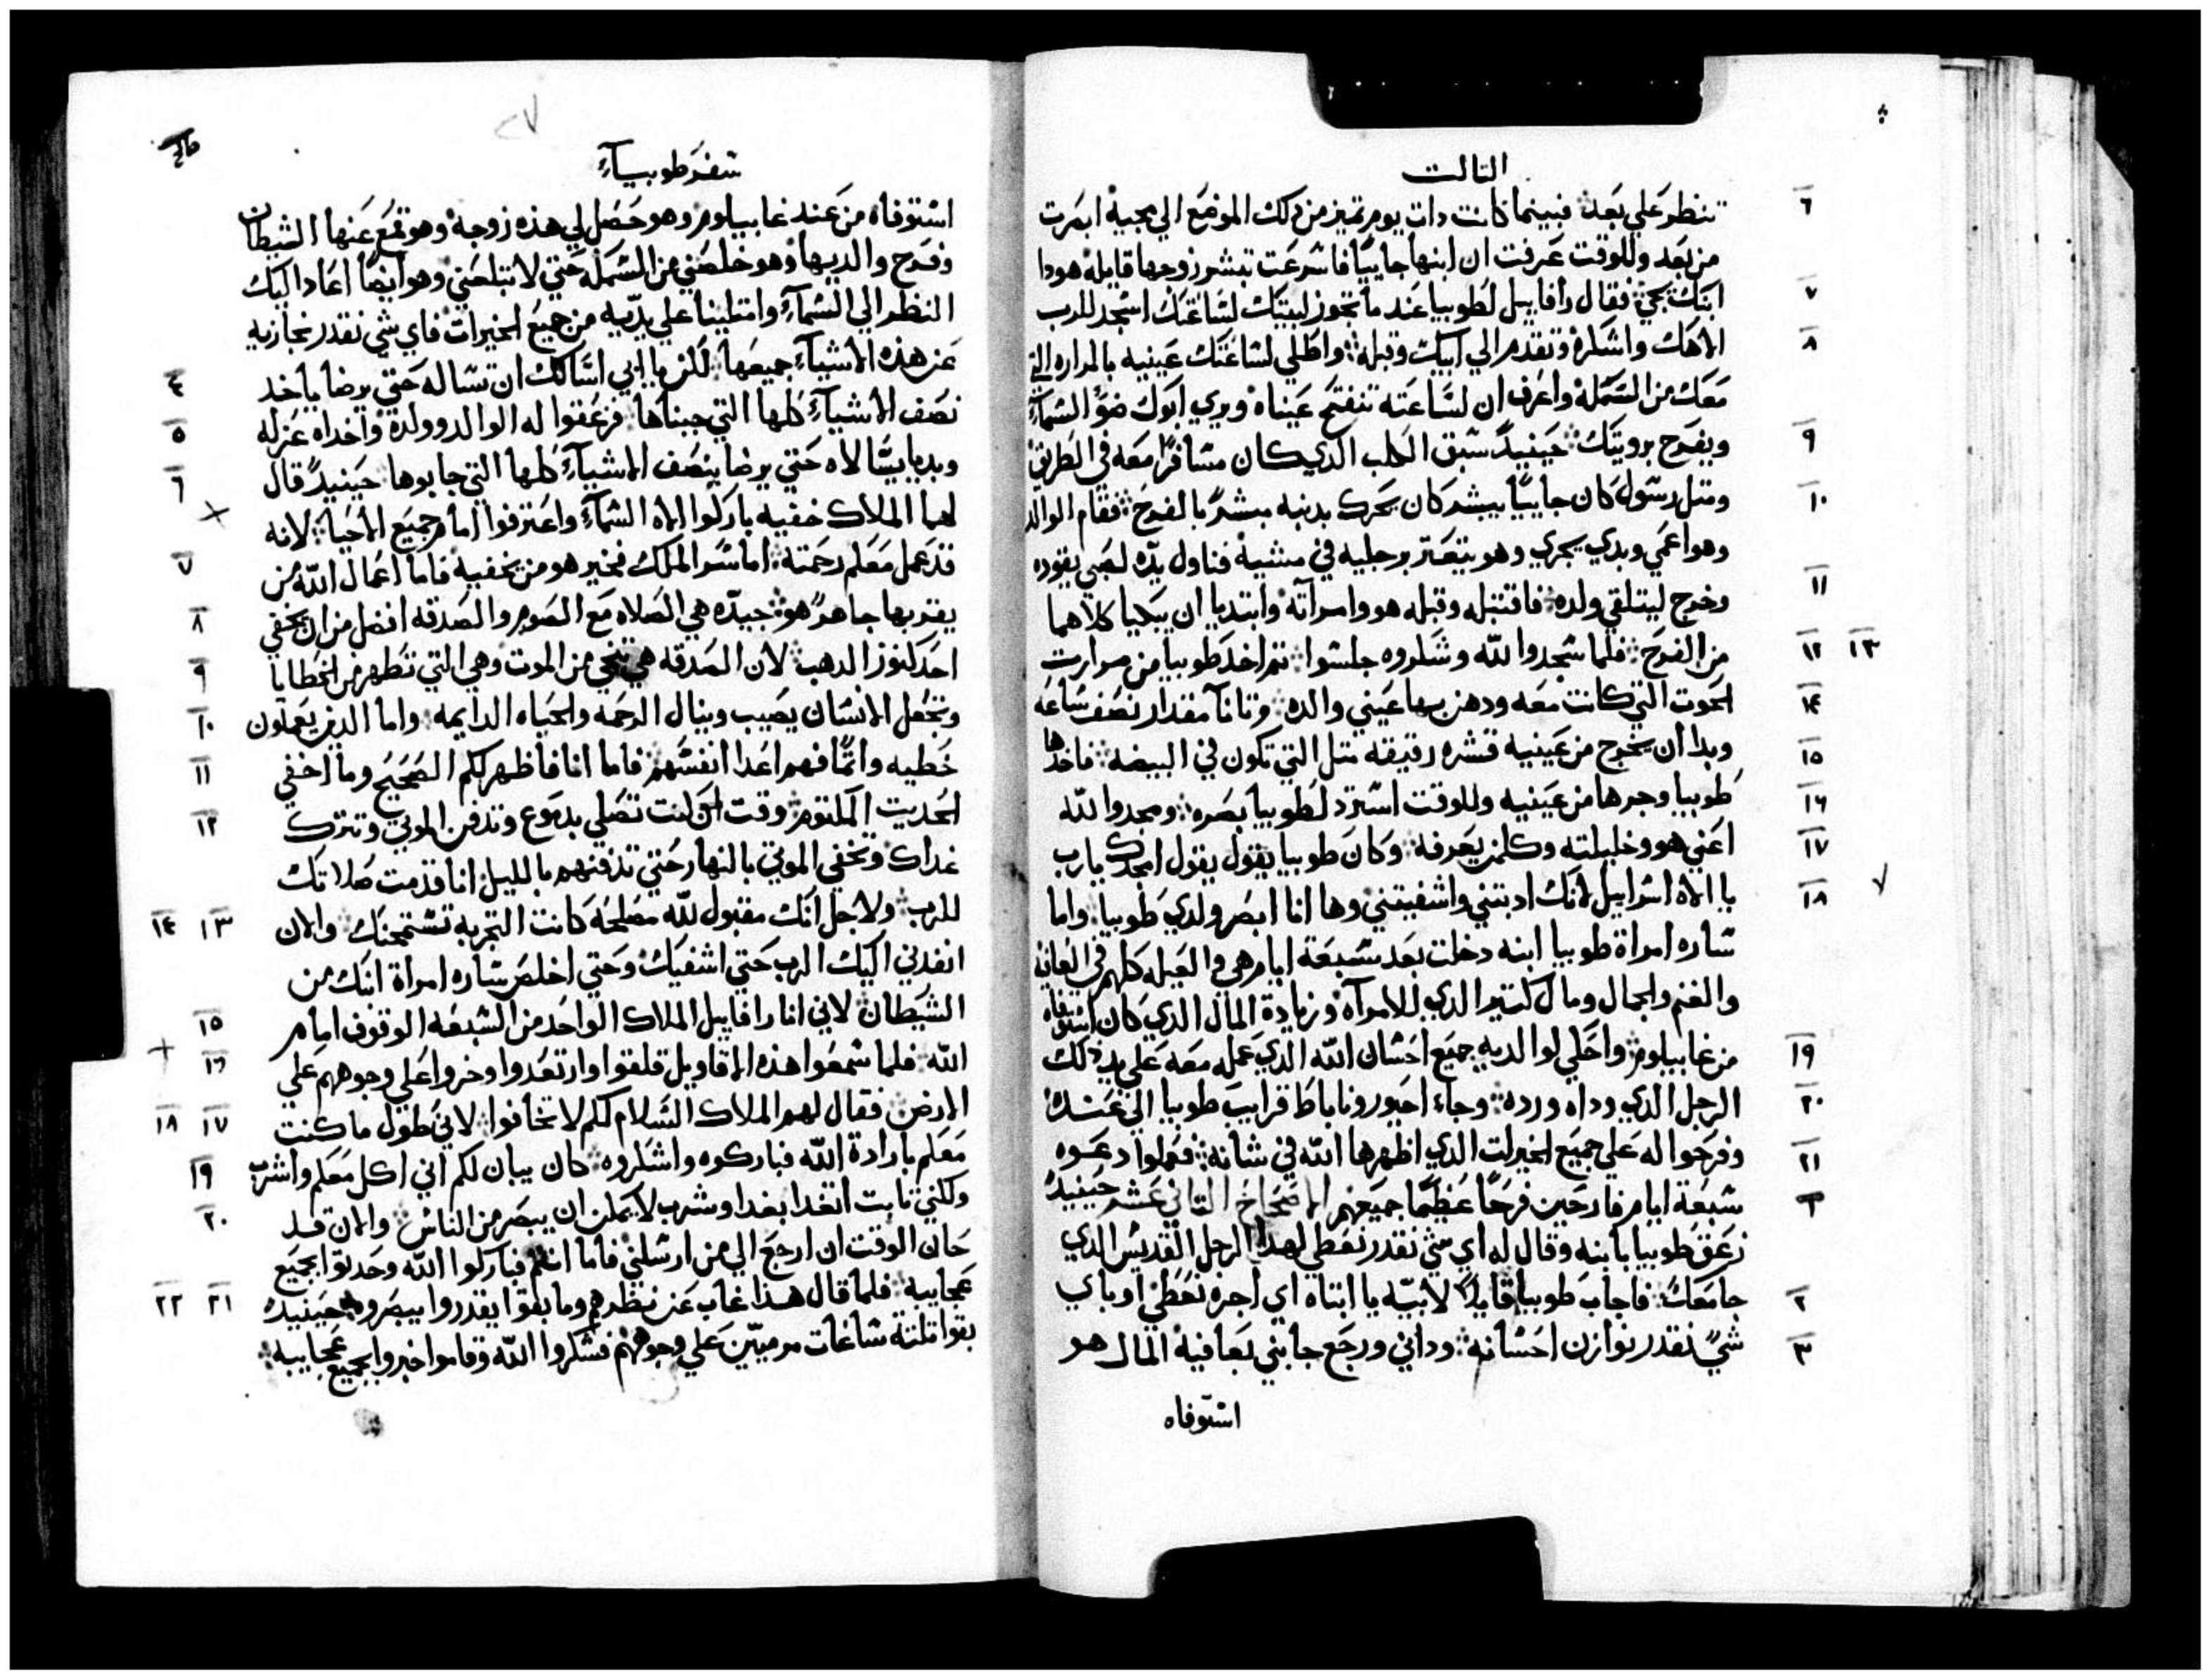 التالت
تنطر علي بعد فبينما كانت دات يوم تميز من دلك الموضع الي مجيه ابصرت
من بعد وللوقت عرفت ان ابنها جاييًا فاسرعت تبشر زوجها قايله هودا
ابنك يجي فقال رافاييل لطوبيا عند ما تجوز لبيتك لساعتك اسجد للرب
الاهك واشكره وتقدم الي ابيك وقبله واطلي لساعتك عينيه بالمراره التي
معك من السمكه واعرف ان لساعته تنفتح عيناه ويري ابوك ضو السمآء
ويفرح برويتك حينيدً سبق الكلب الدي كان مسافرًا معه في الطريق
ومتل رسول كان جاييًا يبشر كان يحرك بدنبه مبشرًا بالفرح فقام الوالد
وهو اعمي وبدي يجري وهو يتعتر برجليه في مشيه فناول يده لصبي يقوده
وخرج ليتلقي ولده فاقتبله وقبله هو وامراته وابتديا ان يبكيا كلاهما
من الفرح فلما سجدوا لله وشكروه جلسوا تم اخد طوبيا من مرارت
الحوت التي كانت معه ودهن بها عيني والده وتانآ مقدار نصف ساعه
وبدا ان يخرج من عينيه قشره رقيقه متل التي تكون في البيضه فاخدها
طوبيا وجرها من عينيه وللوقت استرد لطوبيا بصره ومجدوا لله
اعني هو وخليلته وكلمن يعرفه وكان طوبيا يقول يقول امجدك يارب
يا الاه اسراييل لانك ادبتني واشفيتني وها انا ابصر ولدي طوبيا واما
ساره امراة طوبيا ابنه دخلت بعد سبعة ايام هي والعيله كلهم في العافيه
والغنم والجمال ومال كتير الدي للامراه وزيادة المال الدي كان استوفاه
من غابيلوم واحكي لوالديه جميع احسان الله الدي عمله معه علي يد دلك
الرجل الدي وداه ورده وجاء احيور وناباط قرايب طوبيا الي عنده
وفرحوا له علي جميع الخيرات الدي اظهرها الله في شانه فعملوا دعوه
سبعة ايام فارحين فرحًا عظيمًا جميعهم الاصحاح التاني عشر حينيدً
زعق طوبيا بابنه وقال له اي شي نقدر نعطي لهدا الرجل القديس الدي
جا معك فاجاب طوبيا قايلاً لابيه يا ابتاه اي اجره نعطي او باي
شيً نقدر نوازن احسانه وداني ورجع جابني بعافيه المال هو
استوفاه
٦
٧
٨
٩
١٠
١١
١٢ ١٣
١٤
١٥
١٦
١٧
١٨
١٩
٢٠
٢١
٢
٣
سفر طوبيآء
استوفاه من عند غابيلوم وهو حصل لي هده زوجه وهو قمع عنها الشيطان
وفرح والديها وهو خلصني من السمكه حتي لا تبلعني وهو ايضًا اعاد اليك
النظر الى السمآء وامتلينا علي يديه من جميع الخيرات فاي شي نقدر نجازيه
عن هذه الاشيآء جميعها لكن يا ابي اسالك ان تساله حتي يرضا ياخد
نصف الاشيآء كلها التي جبناها فزعقوا له الوالد وولده واخداه عزله
وبديا يسالاه حتي يرضا بنصف الاشيآء كلها التي جابوها حينيدً قال
لهما الملاك خفيه باركوا الاه السمآء واعترفوا امام جميع الاحيا لانه
قد عمل معكم رحمته اما سر الملك فخير هو من يخفيه فاما اعمال الله من
يقر بها جاهرً هو جيده هي الصلاه مع الصوم والصدقه افضل من ان يخفي
احد كنوز الدهب لان الصدقه هي تنجي من الموت وهي التي تطهر من الخطايا
وتجعل الانسان يصيب وينال الرحمه والحياه الدايمه واما الدين يعملون
خطيه واتمًا فهم اعدا انفسهم فاما انا فاظهر لكم الصحيح وما اخفي
الحديت المكتوم وقت ان كنت تصلي بدموع وتدفن الموتي وتترك
غداك وتخفي الموتي بالنهار حتي تدفنهم بالليل انا قدمت صلاتك
للرب ولاجل انك مقبول لله مصلحه كانت التجربه تستمحنك والان
انفدني اليك الرب حتي اشفيك وحتي اخلص ساره امراة ابنك من
الشيطان لاني انا رافاييل الملاك الواحد من السبعه الوقوف امام
الله فلما سمعوا هذه الاقاويل قلقوا وارتعدوا وخروا علي وجوههم علي
الارض فقال لهم الملاك السلام لكم لا تخافوا لاني طول ما كنت
معكم بارادة الله فباركوه واشكروه كان يبان لكم اني اكل معكم واشرب
ولكني تابت اتغدا بغدا وشرب لا يمكن ان يبصر من الناس والان قد
حان الوقت ان ارجع الي من ارسلني فاما انتم فباركوا الله وحدتوا بجميع
عجايبه فلما قال هذا غاب عن نظرهم وما بقوا يقدروا يبصروه حينيدً
بقوا تلتة ساعات مرميين علي وجوههم فشكروا الله وقاموا خبروا بجميع عجايبه
٤
٥
٦
٧
٨
٩
١٠
١١
١٢
١٣ ١٤
١٥
١٦
١٧ ١٨
١٩
٢٠
٢١ ٢٢